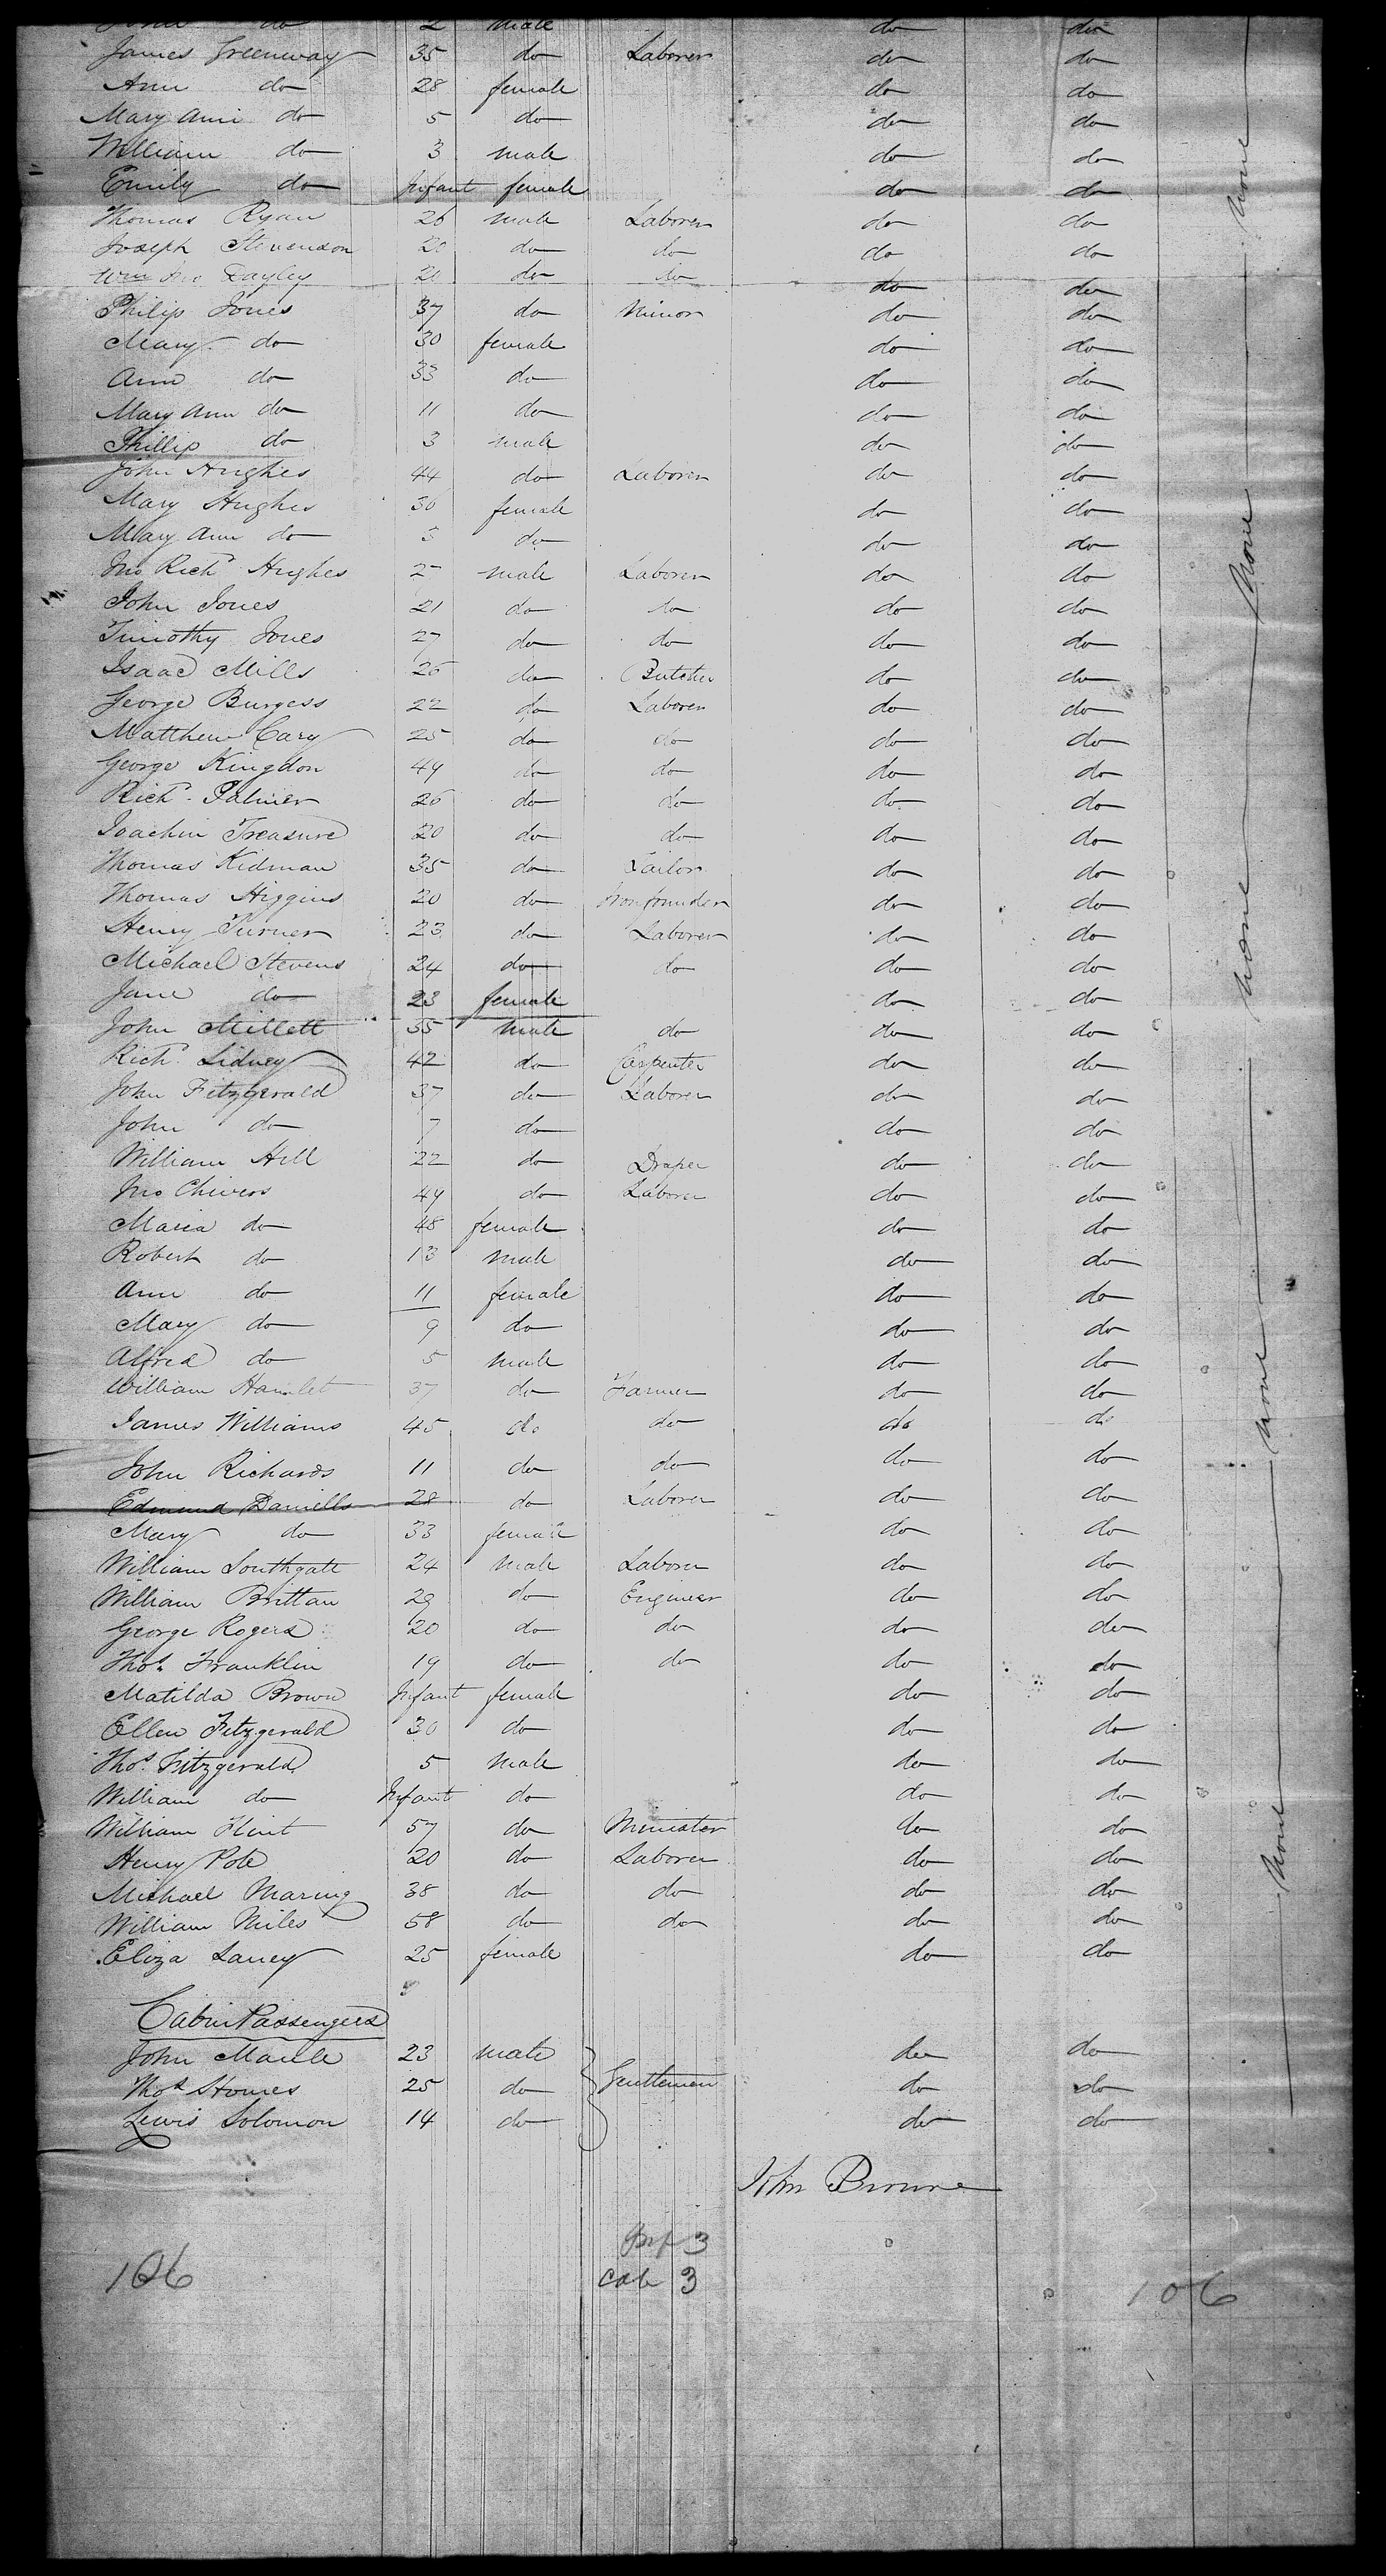 John do 2 male do do
James Greenway 35 do Laborer do do
Ann do 28 female do do
Mary Ann do 5 do do do
William do 3 male do do
Emily do Infant female do do
Thomas Ryan 26 male Laborer do do
Joseph Stevenson 20 do do do do
Wm Jno Dayley 20 do do do do
Philip Jones 37 do Minor do do
Mary do 30 female do do
Ann do 33 do do do
Mary Ann do 11 do do do
Phillip do 3 male do do
John Hughes 44 do Laborer do do
Mary Hughes 30 female do do
Mary Ann do 3 do do do
Jno Richd Hughes male Laborer do do
John Jones 21 do do do do
Timothy Jones 27 do do do do
Isaac Mills 26 do Butcher do do
George Burgess 22 do Laborer do do
Matthew Cary 25 do do do do
George Kingdon 49 do do do do
Richd Palmer 26 do do do do
Joachim Treasure 20 do do do do
Thomas Kidman 35 do Tailor do do
Thomas Higgins 20 do Ironfounder do do
Henry Turner 23 do Laborer do do
Michael Stevens 24 do do do do
Jane do 23 female do do
John Millett 35 male do do do
Richd Sidney 42 do Carpenter do do
John Fitzgerald 37 do Laborer do do
John do 7 do do do
William Hill 22 do Draper do do
Jno Chivers 49 do Laborer do do
Maria do 48 female do do
Robert do 13 male do do
Ann do 11 female do do
Mary do 9 do do do
Alfred do 5 male do do
William Hamlet 37 do Farmer do do
James Williams 45 do do do do
John Richards 11 do do do do
Edmund Daniells 28 do Laborer do do
Mary do 33 female do do
William Southgate 24 male Laborer do do
William Brittan 29 do Engineer do do
George Rogers 20 do do do do
Thos Franklin 19 do do do do
Matilda Brown Infant female do do
Ellen Fitzgerald 30 do do do
Thos Fitzgerald 5 male do do
William do Infant do do do
William Flint 57 do Minister do do
Henry Pole 20 do Laborer do do
Michael Maring 38 do do do do
William Miles 58 do do do do
Eliza Laney 25 female do do
Cabin Passengers
John Maule 23 male do do
Thos Homes 25 do Gentlemen do do
Lewis Solomon 14 do do do
John Browne
Inf 3
106 Cab 3 106
none none none none none